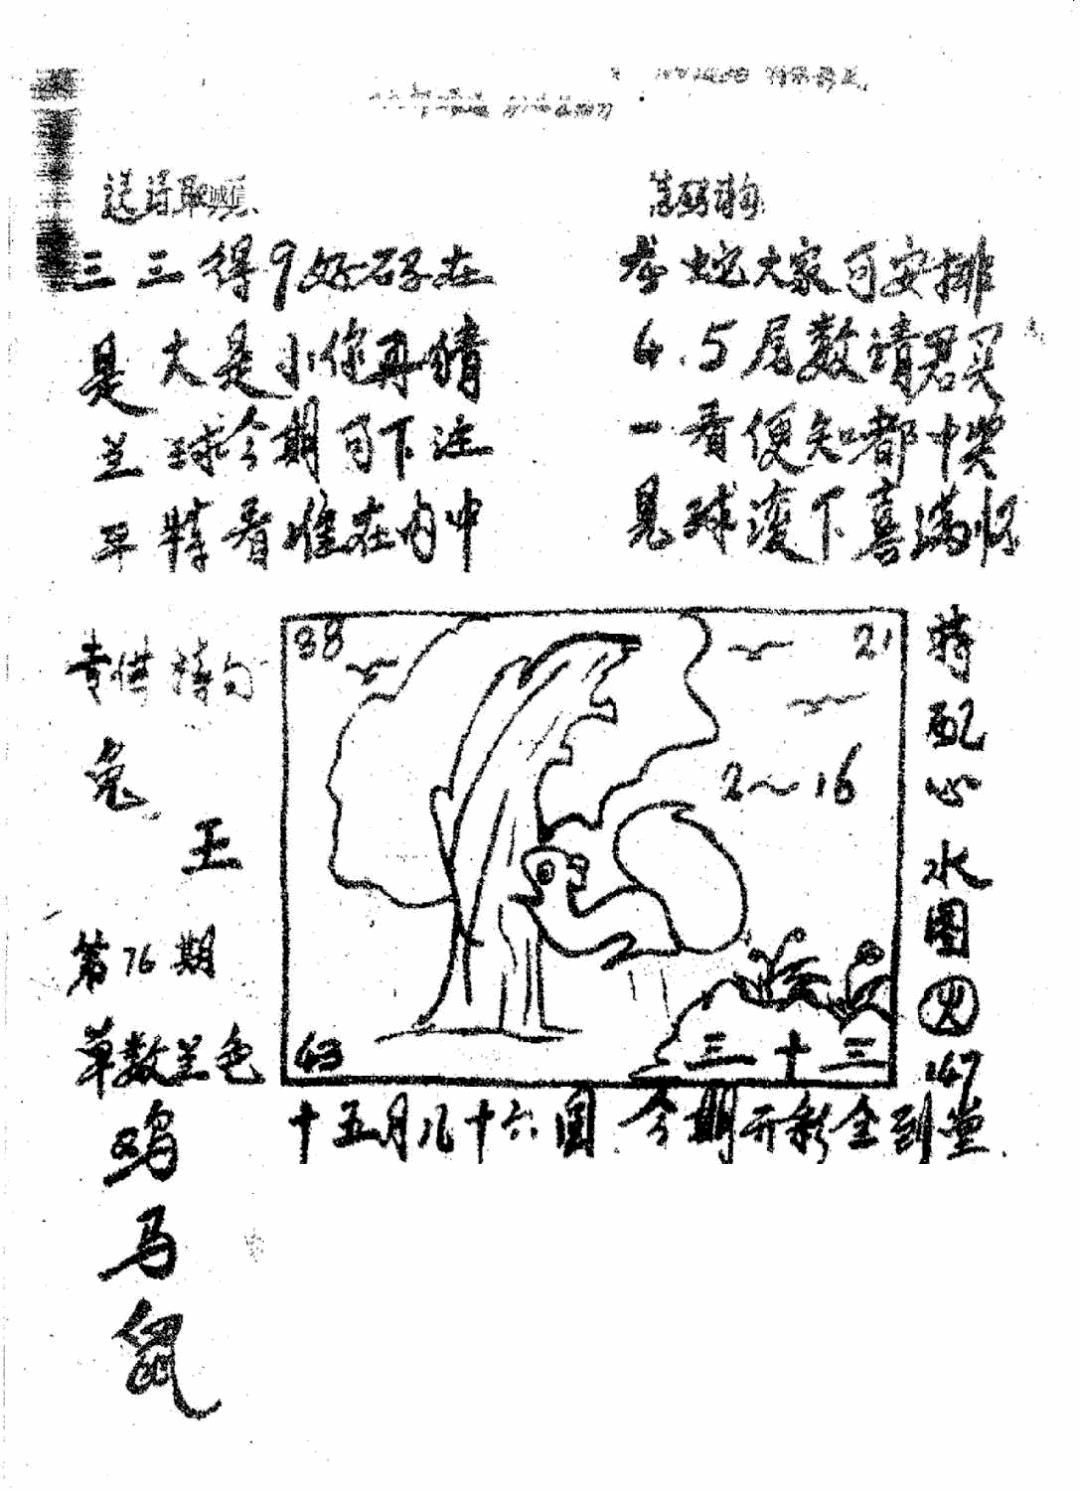 三三得9好码在
是大是小你再猜
兰球今期可下注
平特看准在内中
龙蛇大家可安排
4.5尾数请君买
一看便知都中奖
见球滚下喜满怀
兔
王
第76期
单数兰色
鸡
马
鼠
38
21
2~16
43
三十三
特配心水图
火
147
十五月儿十六圆 今期开彩全到堂